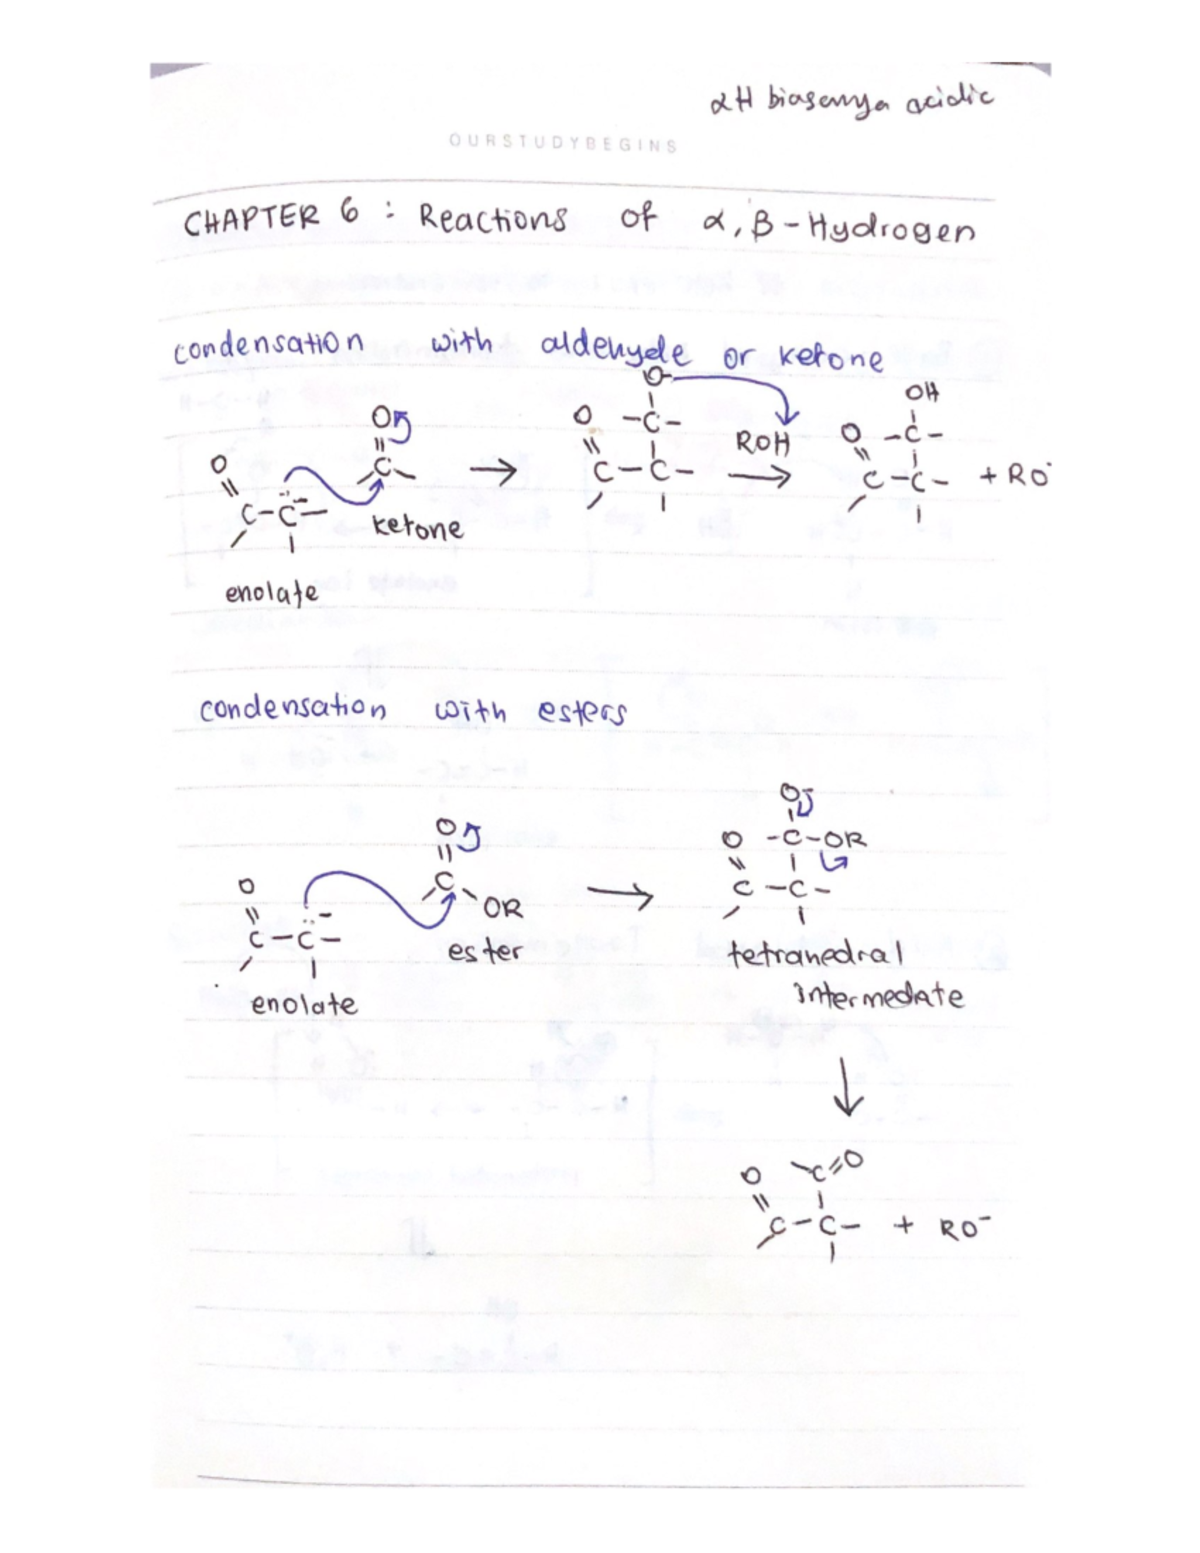 αH biasanya acidic
OURSTUDYBEGINS
CHAPTER 6 : Reactions of α, β - Hydrogen
condensation with aldehyde or ketone
O O O O- ROH O OH
C-C C C-C-C C-C-C + RO-
ketone
enolate
condensation with esters
O O O O-
C-C C OR C-C-C-OR
ester
enolate
tetrahedral
intermediate
O C=O
C-C + RO-